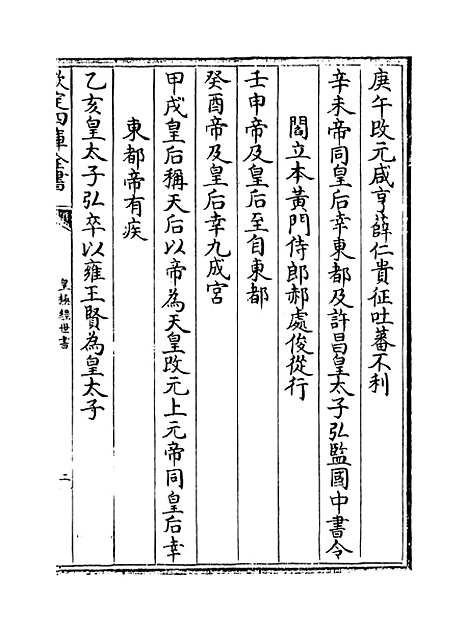 庚午改元咸亨薛仁貴征吐蕃不利
辛未帝同皇后幸東都及許昌皇太子弘監國中書令
閻立本黃門侍郎郝處俊從行
壬申帝及皇后至自東都
癸酉帝及皇后幸九成宮
甲戌皇后稱天后以帝為天皇改元上元帝同皇后幸
東都帝有疾
乙亥皇太子弘卒以雍王賢為皇太子
欽定四庫全書
皇極經世書
二